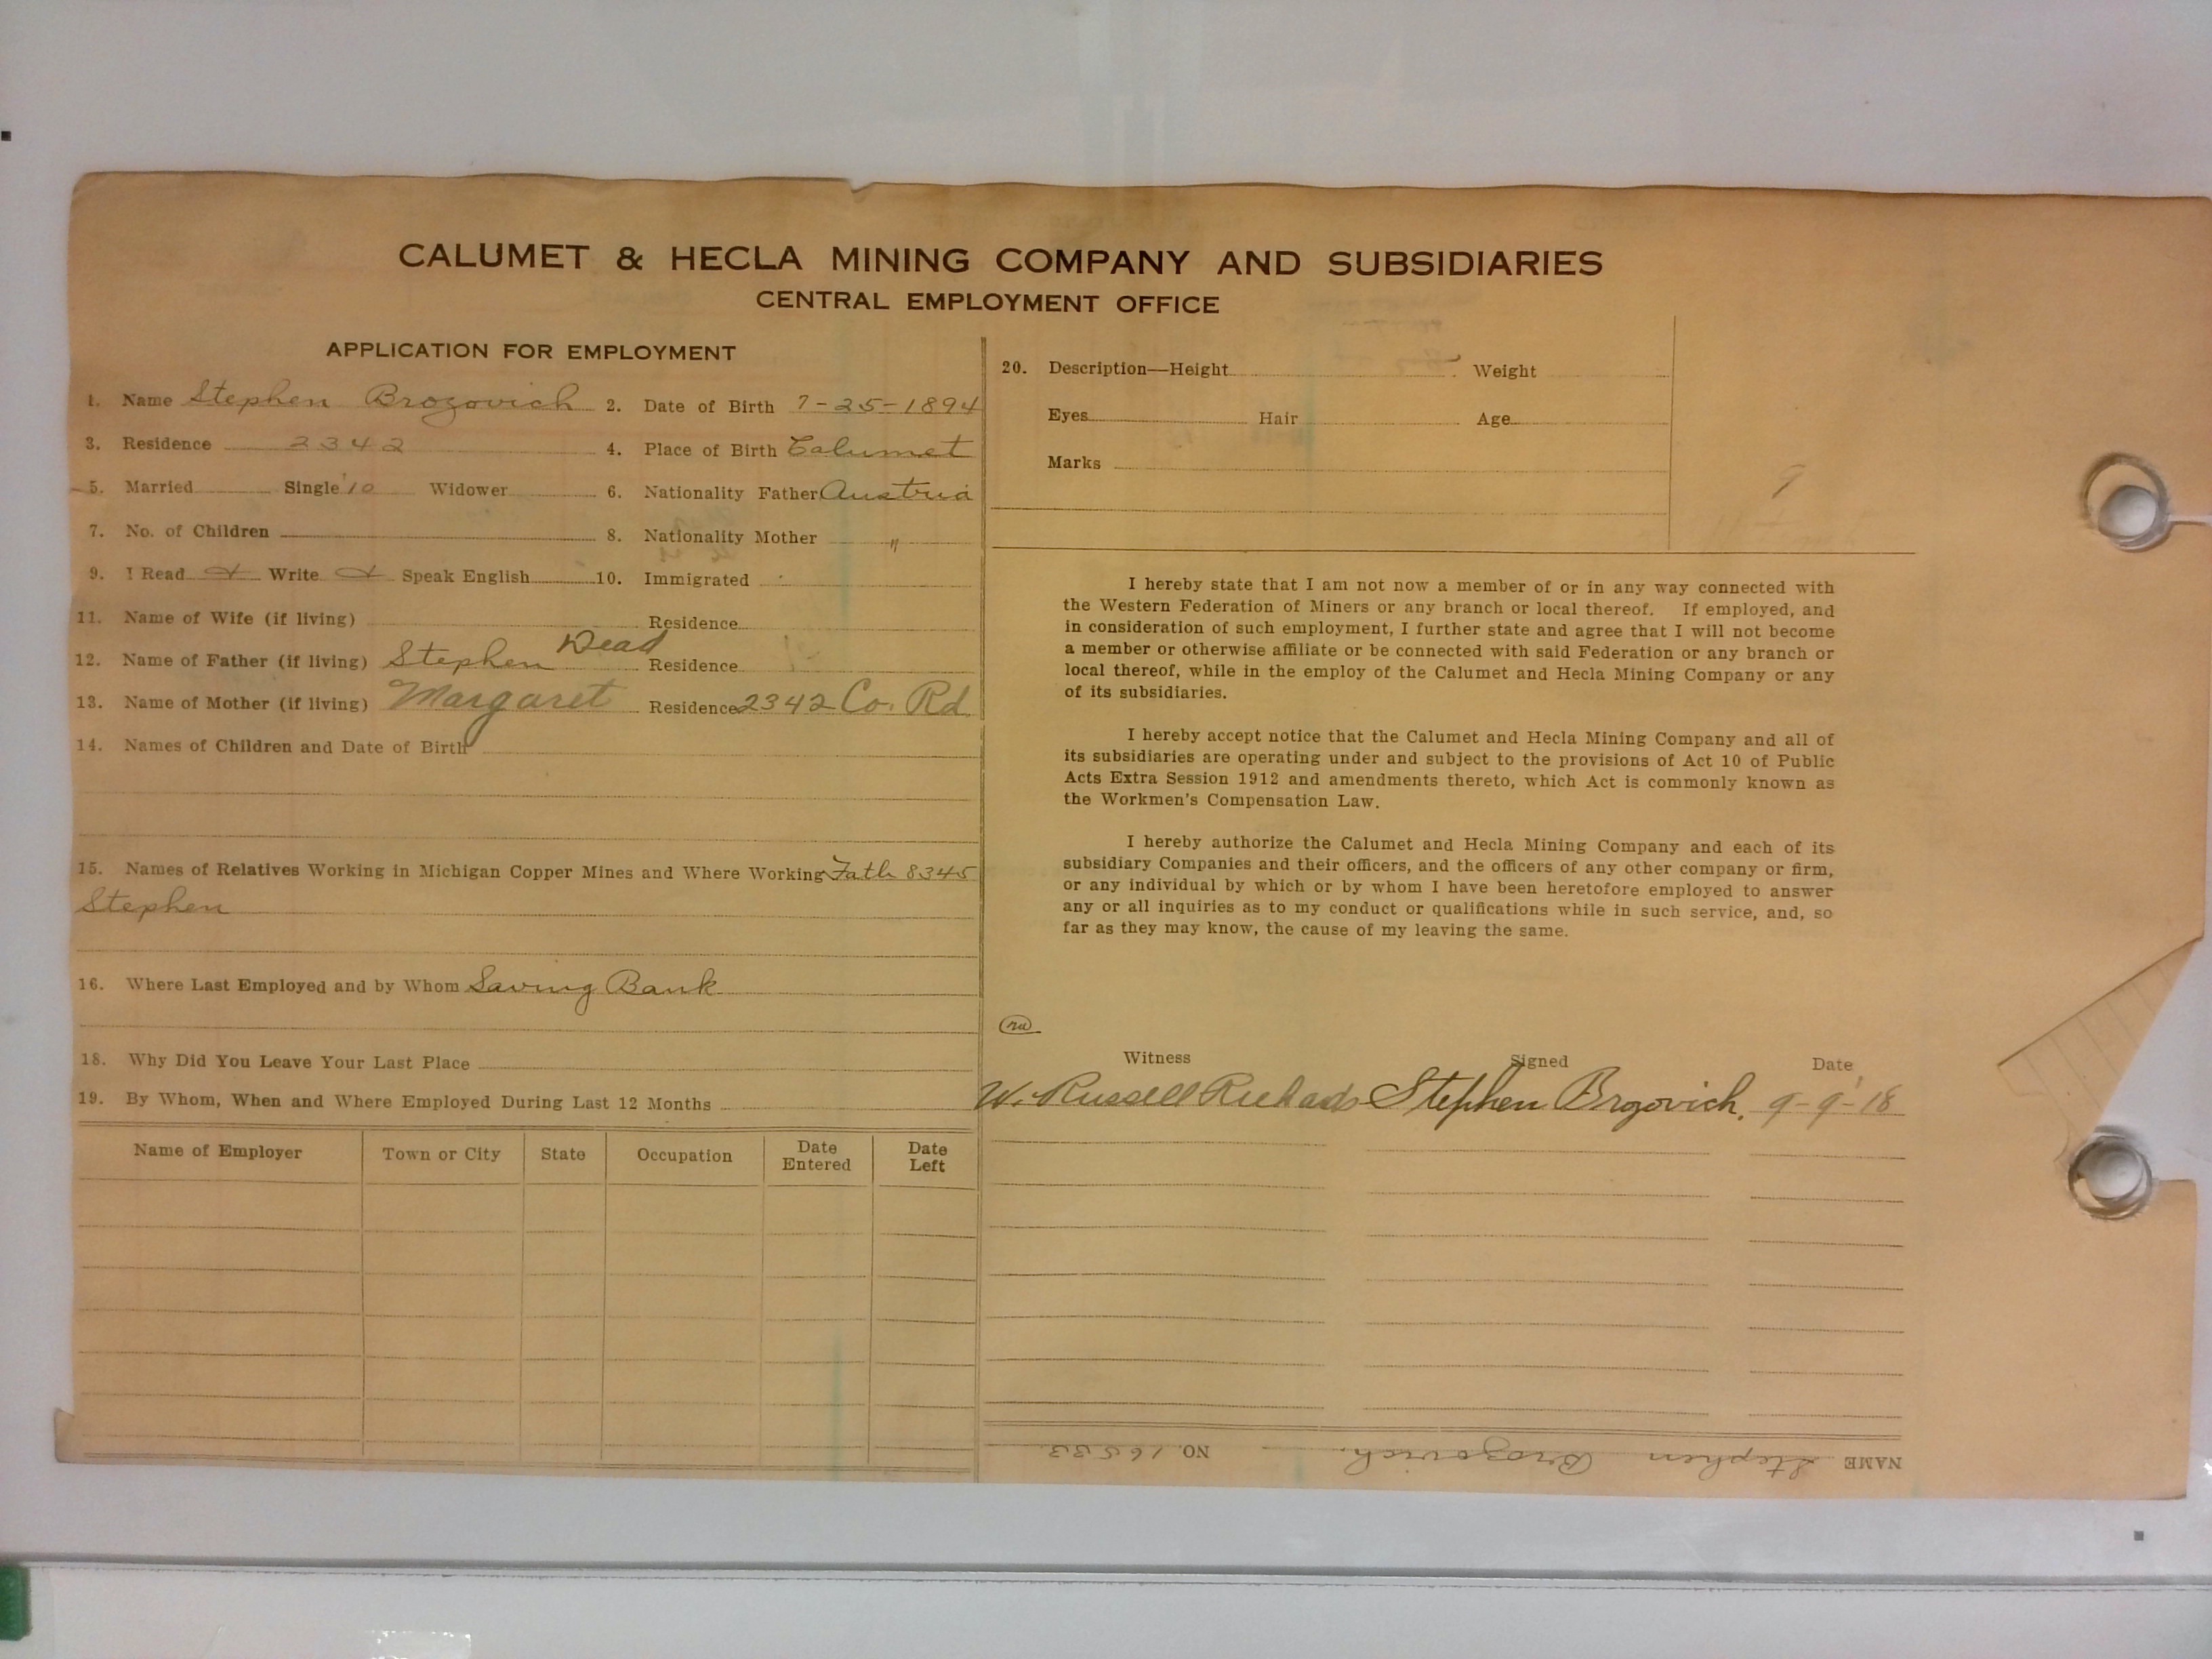 CALUMET & HECLA MINING COMPANY AND SUBSIDIARIES
CENTRAL EMPLOYMENT OFFICE
APPLICATION FOR EMPLOYMENT
1. Name Stephen Brozovich 2. Date of Birth 7-25-1894
3. Residence 2342 4. Place of Birth Calumet
5. Married Single '10 Widower 6. Nationality Father Austria
7. No. of Children 8. Nationality Mother "
9. I Read Write Speak English 10. Immigrated
11. Name of Wife (if living) Residence
12. Name of Father (if living) Stephen Dead Residence
13. Name of Mother (if living) Margaret Residence 2342 Co. Rd.
14. Names of Children and Date of Birth
15. Names of Relatives Working in Michigan Copper Mines and Where Working Fath 8345
Stephen
16. Where Last Employed and by Whom Saving Bank
18. Why Did You Leave Your Last Place
19. By Whom, When and Where Employed During Last 12 Months
Name of Employer Town or City State Occupation Date Entered Date Left
20. Description—Height Weight
Eyes Hair Age
Marks
I hereby state that I am not now a member of or in any way connected with
the Western Federation of Miners or any branch or local thereof. If employed, and
in consideration of such employment, I further state and agree that I will not become
a member or otherwise affiliate or be connected with said Federation or any branch or
local thereof, while in the employ of the Calumet and Hecla Mining Company or any
of its subsidiaries.
I hereby accept notice that the Calumet and Hecla Mining Company and all of
its subsidiaries are operating under and subject to the provisions of Act 10 of Public
Acts Extra Session 1912 and amendments thereto, which Act is commonly known as
the Workmen's Compensation Law.
I hereby authorize the Calumet and Hecla Mining Company and each of its
subsidiary Companies and their officers, and the officers of any other company or firm,
or any individual by which or by whom I have been heretofore employed to answer
any or all inquiries as to my conduct or qualifications while in such service, and, so
far as they may know, the cause of my leaving the same.
Witness Signed Date
W. Russell Richards Stephen Brozovich. 9-9-18
NAME Stephen Brozovich. NO. 16533